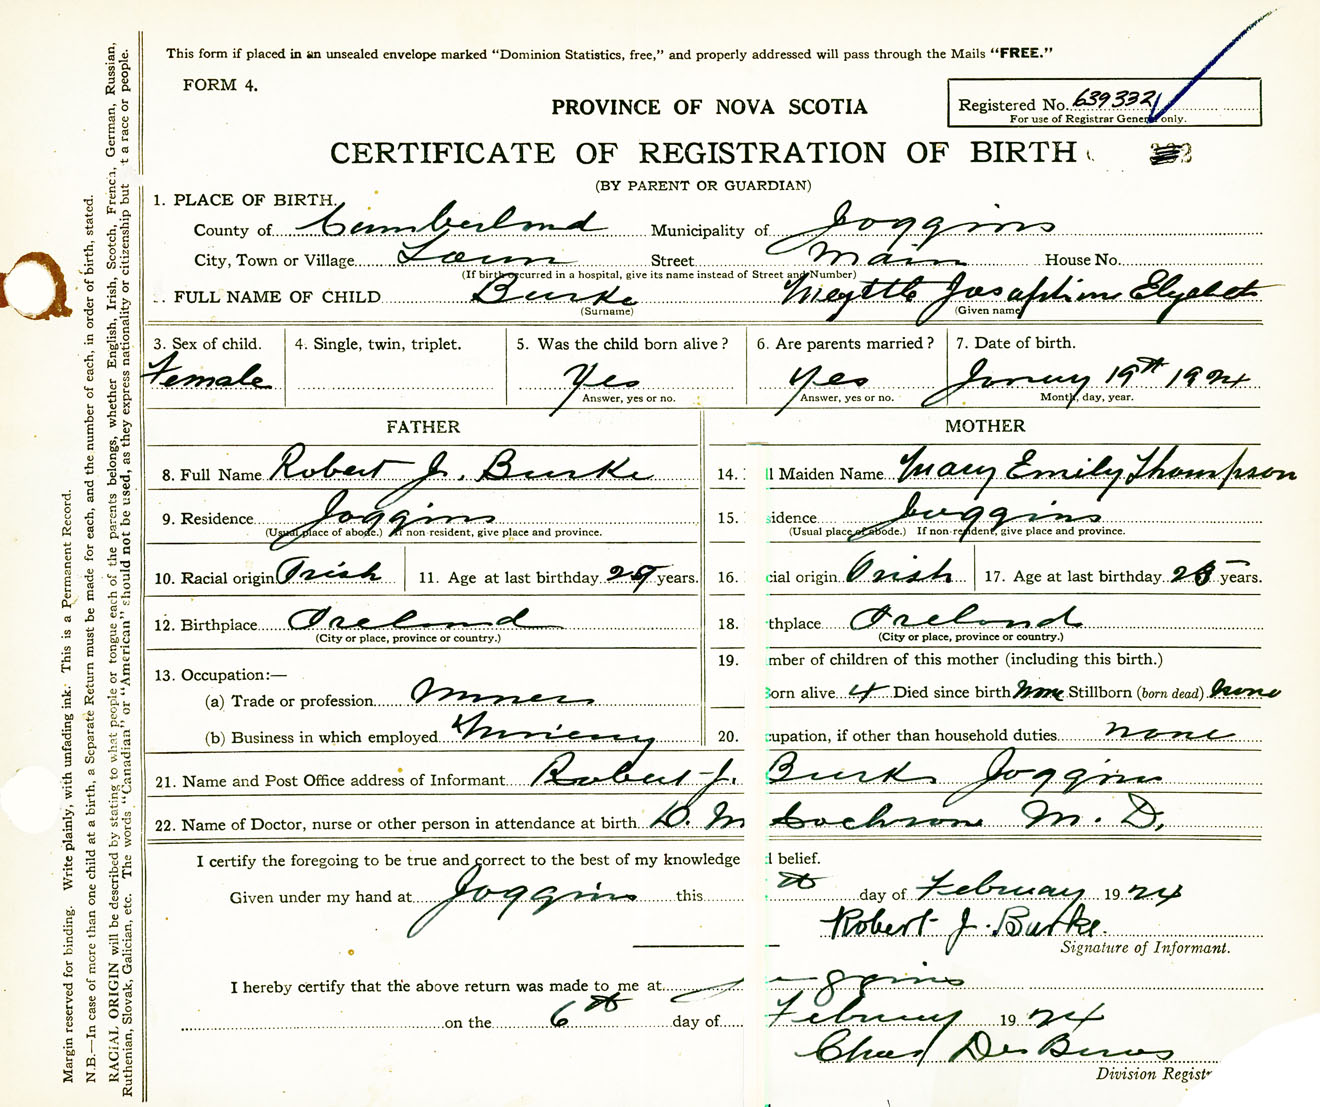 This form if placed in an unsealed envelope marked "Dominion Statistics, free," and properly addressed will pass through the Mails "FREE."
FORM 4.
PROVINCE OF NOVA SCOTIA
Registered No. 639332
For use of Registrar General only.
CERTIFICATE OF REGISTRATION OF BIRTH
(BY PARENT OR GUARDIAN)
1. PLACE OF BIRTH.
County of Cumberland Municipality of Joggins
City, Town or Village Town Street Main House No.
(If birth occurred in a hospital, give its name instead of Street and Number)
FULL NAME OF CHILD Burke Myrtle Josaphine Elyabeth
(Surname) (Given name)
3. Sex of child. 4. Single, twin, triplet. 5. Was the child born alive? 6. Are parents married? 7. Date of birth.
Female Yes Yes January 19th 1924
Answer, yes or no. Answer, yes or no. Month, day, year.
FATHER MOTHER
8. Full Name Robert J. Burke 14. l Maiden Name Mary Emily Thompson
9. Residence Joggins 15. sidence Joggins
(Usual place of abode.) If non-resident, give place and province. (Usual place of abode.) If non-resident, give place and province.
10. Racial origin Irish 11. Age at last birthday years. 16. cial origin Irish 17. Age at last birthday years.
12. Birthplace Ireland 18. thplace Ireland
(City or place, province or country.) (City or place, province or country.)
13. Occupation:— 19. mber of children of this mother (including this birth.)
(a) Trade or profession Miner Born alive 4 Died since birth None Stillborn (born dead) None
(b) Business in which employed 20. cupation, if other than household duties none
21. Name and Post Office address of Informant Robert J. Burke Joggins
22. Name of Doctor, nurse or other person in attendance at birth D. M Cochrane M. D.
I certify the foregoing to be true and correct to the best of my knowledge d belief.
Given under my hand at Joggins this th day of February 1924
Robert J. Burke.
Signature of Informant.
I hereby certify that the above return was made to me at J ggins
on the 6th day of February 1924
Chas Des Barres
Division Registr
Margin reserved for binding. Write plainly, with unfading ink. This is a Permanent Record.
N.B.—In case of more than one child at a birth, a Separate Return must be made for each, and the number of each, in order of birth, stated.
RACIAL ORIGIN will be described by stating to what people or tongue each of the parents belongs, whether English, Irish, Scotch, French, German, Russian,
Ruthenian, Slovak, Galician, etc. The words "Canadian" or "American" should not be used, as they express nationality or citizenship but t a race or people.